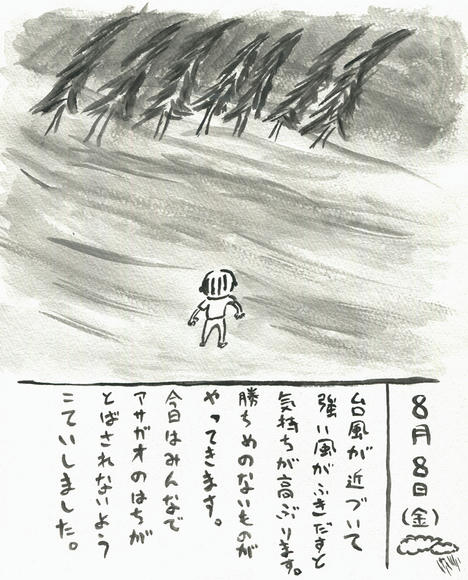 8月8日(金)
台風が近づいて
強い風がふきだすと
気持ちが高ぶります。
勝ちめのないものが
やってきます。
今日はみんなで
アサガオのはちが
とばされないよう
こていしました。